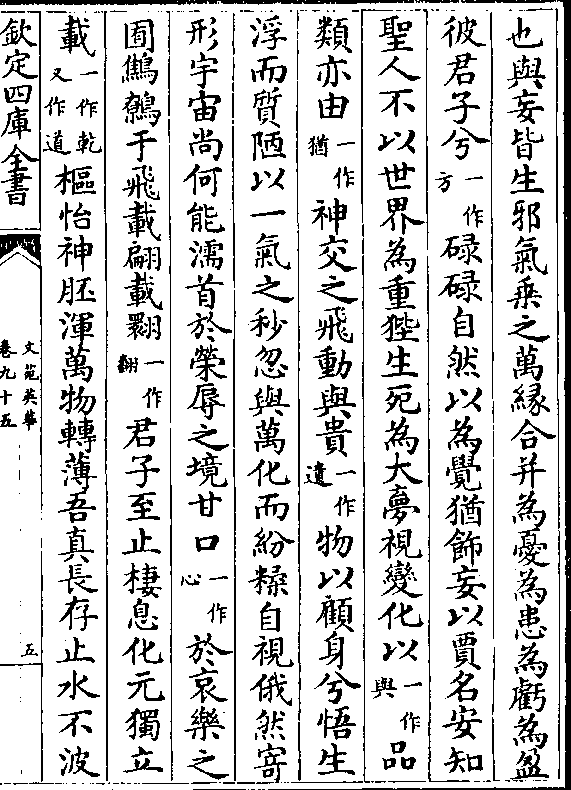 也與妄皆生邪氣乗之萬緣合并為憂為患為虧為盈
彼君子兮一作方碌碌自然以為覺猶飾妄以賈名安知
聖人不以世界為重狴生死為大夢視變化以一作與品
類亦由一作猶神交之飛動與貴一作遺物以顧身兮悟生
浮而質陋以一氣之秒忽與萬化而紛糅自視俄然寄
形宇宙尚何能濡首於榮辱之境甘口一作心於哀樂之
囿鷦鷯于飛載翩載翾一作翻君子至止棲息化元獨立
載一作乾又作道樞怡神胚渾萬物轉薄吾真長存止水不波
欽定四庫全書
文苑英華
卷九十五
五